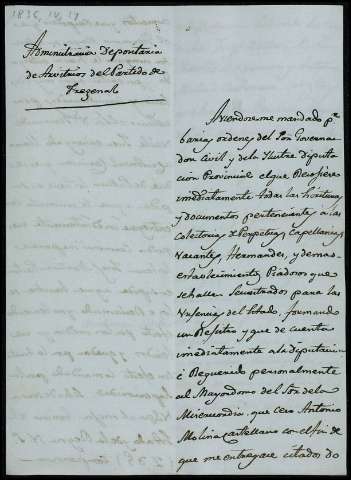 1836, IV, 19
Administración Depositaria
de Arvitrios del Partido de
Fregenal
Aviendoseme mandado pr
barias ordenes del Sor Governa
dor Civil y de la Ilustre Diputa
cion Provincial el que Recojiere
imediatamente todas las Escrituras
y documentos pertenecientes a las
Colecturia Perpetua, Capellanias
Vacantes, Hermandes, y demas
establecimientos Piadosos que
se hallan Secuestrados para las
Urgencias del Estado, formando
un Registro y que de cuenta
imediatamente a la diputacion
é Requerido personalmente
al Mayordomo del Sor de la
Misericordia que era Antonio
Molina Castellano con el fin de
que me entregare citados do